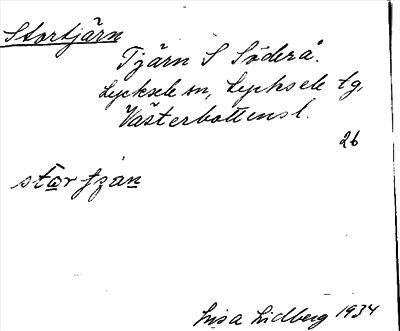 Stortjärn
Tjärn S Söderå.
Lycksele sn, Lycksele tg.
Västerbottens l.
26
Lisa Lidberg 1934